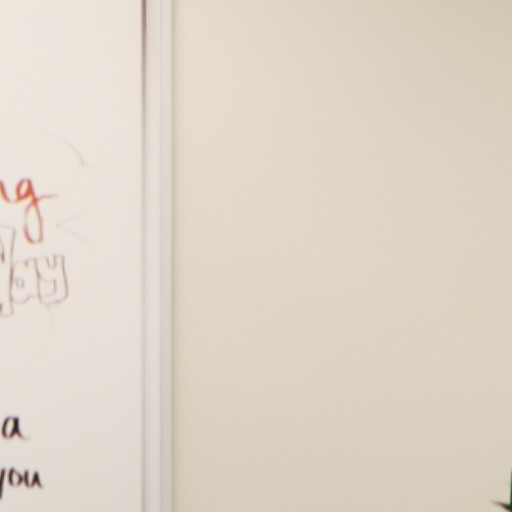 ng
ay
a
you